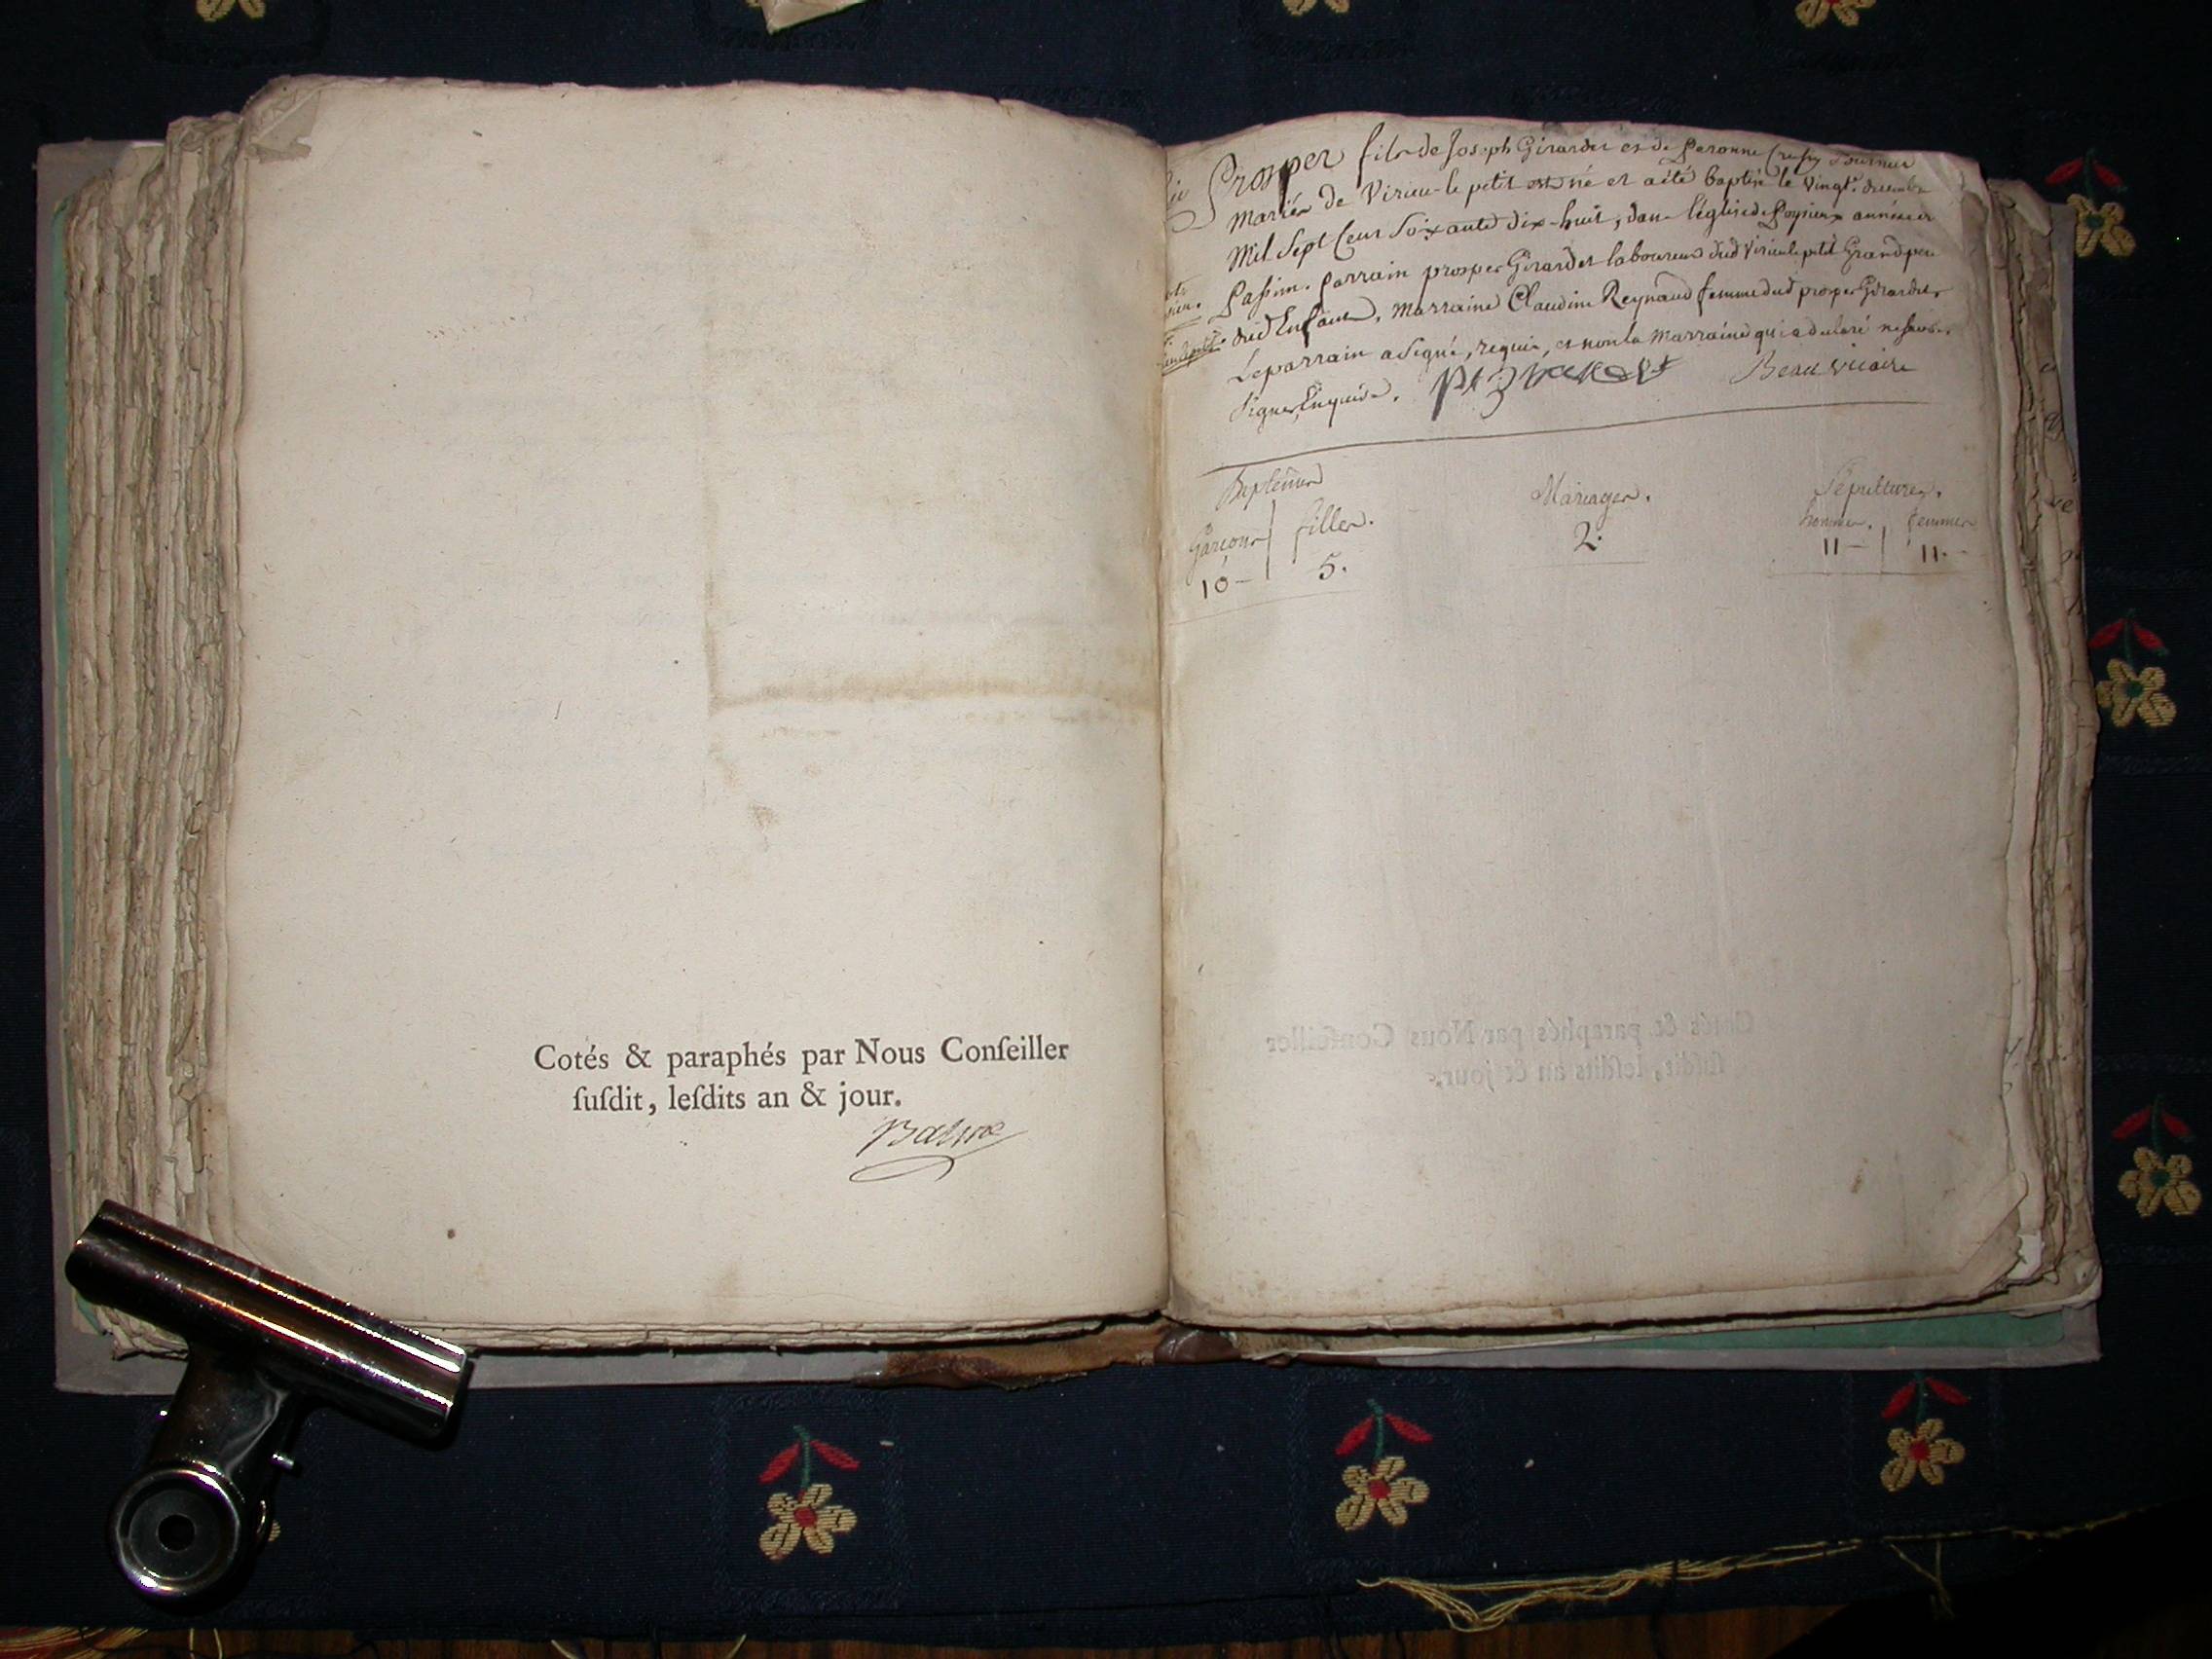 Cotés & paraphés par Nous Conſeiller
ſuſdit, leſdits an & jour.
Balme
Prosper fils de Joseph Girardet et de Peronne
mariés de Virieu-le petit est né et a été baptisé le vingt décembre
Mil Sept Cent Soixante dix-huit, dans l'église de Poysieux annéxe de
Passim. parrain prosper Girardet laboureur dud Virieu le petit Grand pere
dud Enfant, marraine Claudine Reynaud femme dud prosper Girardet,
Le parrain a signé, requis, et non la marraine qui a declaré ne savoir
signer, Enquise. Beau vicaire
Baptêmes
Garçons filles.
10- 5.
Mariages.
2.
Sépultures.
hommes. femmes
11- 11.-